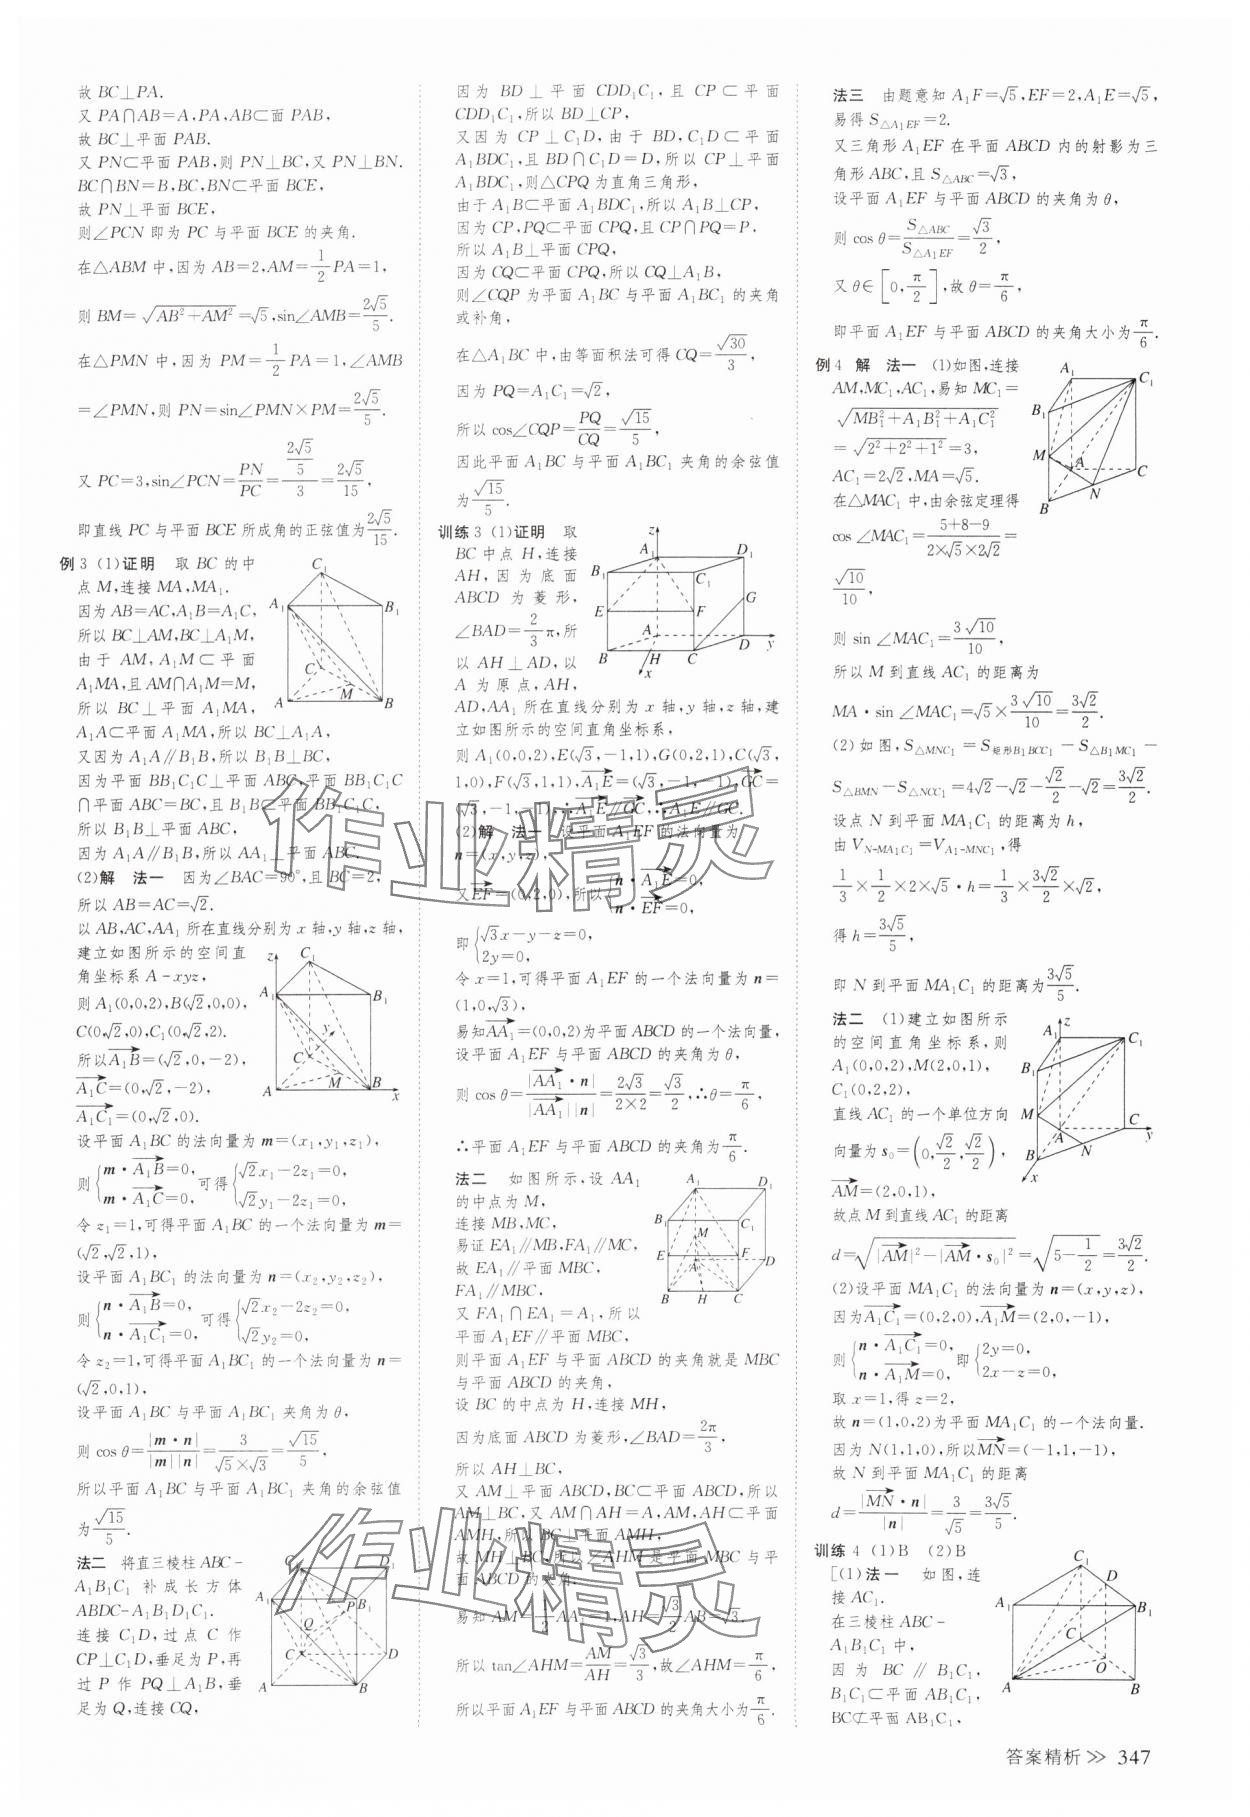 故 BC⊥PA.
又 PA∩AB=A,PA,AB⊂面 PAB,
故 BC⊥平面 PAB.
又 PN⊂平面 PAB,则 PN⊥BC,又 PN⊥BN.
BC∩BN=B,BC,BN⊂平面 BCE,
故 PN⊥平面 BCE,
则∠PCN 即为 PC 与平面 BCE 的夹角.
在△ABM 中,因为 AB=2,AM=1/2 PA=1,
则 BM=√(AB²+AM²)=√5,sin∠AMB=2√5/5.
在△PMN 中,因为 PM=1/2 PA=1,∠AMB
=∠PMN,则 PN=sin∠PMN×PM=2√5/5.
又 PC=3,sin∠PCN=PN/PC=(2√5/5)/3=2√5/15,
即直线 PC 与平面 BCE 所成角的正弦值为2√5/15.
例 3 (1)证明 取 BC 的中
点 M,连接 MA,MA₁.
因为 AB=AC,A₁B=A₁C,
所以 BC⊥AM,BC⊥A₁M,
由于 AM,A₁M⊂平面
A₁MA,且 AM∩A₁M=M,
所以 BC⊥平面 A₁MA,
A₁A⊂平面 A₁MA,所以 BC⊥A₁A,
又因为 A₁A∥B₁B,所以 B₁B⊥BC,
因为平面 BB₁C₁C⊥平面 ABC,平面 BB₁C₁C
∩平面 ABC=BC,且 B₁B⊂平面 BB₁C₁C,
所以 B₁B⊥平面 ABC,
因为 A₁A∥B₁B,所以 AA₁⊥平面 ABC.
(2)解 法一 因为∠BAC=90°,且 BC=2,
所以 AB=AC=√2.
以 AB,AC,AA₁ 所在直线分别为 x 轴,y 轴,z 轴,
建立如图所示的空间直
角坐标系 A-xyz,
则 A₁(0,0,2),B(√2,0,0),
C(0,√2,0),C₁(0,√2,2).
所以A₁B=(√2,0,-2),
A₁C=(0,√2,-2),
A₁C₁=(0,√2,0).
设平面 A₁BC 的法向量为 m=(x₁,y₁,z₁),
则{m·A₁B=0, m·A₁C=0, 可得{√2x₁-2z₁=0, √2y₁-2z₁=0,
令 z₁=1,可得平面 A₁BC 的一个法向量为 m=
(√2,√2,1),
设平面 A₁BC₁ 的法向量为 n=(x₂,y₂,z₂),
则{n·A₁B=0, n·A₁C₁=0, 可得{√2x₂-2z₂=0, √2y₂=0,
令 z₂=1,可得平面 A₁BC₁ 的一个法向量为 n=
(√2,0,1),
设平面 A₁BC 与平面 A₁BC₁ 夹角为 θ,
则 cos θ=|m·n|/(|m||n|)=3/(√5×√3)=√15/5,
所以平面 A₁BC 与平面 A₁BC₁ 夹角的余弦值
为√15/5.
法二 将直三棱柱 ABC-
A₁B₁C₁ 补成长方体
ABDC-A₁B₁D₁C₁.
连接 C₁D,过点 C 作
CP⊥C₁D,垂足为 P,再
过 P 作 PQ⊥A₁B,垂
足为 Q,连接 CQ,
因为 BD⊥平面 CDD₁C₁,且 CP⊂平面
CDD₁C₁,所以 BD⊥CP,
又因为 CP⊥C₁D,由于 BD,C₁D⊂平面
A₁BDC₁,且 BD∩C₁D=D,所以 CP⊥平面
A₁BDC₁,则△CPQ 为直角三角形,
由于 A₁B⊂平面 A₁BDC₁,所以 A₁B⊥CP,
因为 CP,PQ⊂平面 CPQ,且 CP∩PQ=P.
所以 A₁B⊥平面 CPQ,
因为 CQ⊂平面 CPQ,所以 CQ⊥A₁B,
则∠CQP 为平面 A₁BC 与平面 A₁BC₁ 的夹角
或补角,
在△A₁BC 中,由等面积法可得 CQ=√30/3,
因为 PQ=A₁C₁=√2,
所以 cos∠CQP=PQ/CQ=√15/5,
因此平面 A₁BC 与平面 A₁BC₁ 夹角的余弦值
为√15/5.
训练 3 (1)证明 取
BC 中点 H,连接
AH,因为底面
ABCD 为菱形,
∠BAD=2/3 π,所
以 AH⊥AD,以
A 为原点,AH,
AD,AA₁ 所在直线分别为 x 轴,y 轴,z 轴,建
立如图所示的空间直角坐标系,
则 A₁(0,0,2),E(√3,-1,1),G(0,2,1),C(√3,
1,0),F(√3,1,1),A₁E=(√3,-1,-1),GC=
(√3,-1,-1),∴A₁E∥GC,∴A₁E∥GC.
(2)解 法一 设平面 A₁EF 的法向量为
n=(x,y,z),
又EF=(0,2,0),所以{n·A₁E=0, n·EF=0,
即{√3x-y-z=0, 2y=0,
令 x=1,可得平面 A₁EF 的一个法向量为 n=
(1,0,√3),
易知AA₁=(0,0,2)为平面 ABCD 的一个法向量,
设平面 A₁EF 与平面 ABCD 的夹角为 θ,
则 cos θ=|AA₁·n|/(|AA₁||n|)=2√3/(2×2)=√3/2,∴θ=π/6,
∴平面 A₁EF 与平面 ABCD 的夹角为π/6.
法二 如图所示,设 AA₁
的中点为 M,
连接 MB,MC,
易证 EA₁∥MB,FA₁∥MC,
故 EA₁∥平面 MBC,
FA₁∥MBC,
又 FA₁∩EA₁=A₁,所以
平面 A₁EF∥平面 MBC,
则平面 A₁EF 与平面 ABCD 的夹角就是 MBC
与平面 ABCD 的夹角,
设 BC 的中点为 H,连接 MH,
因为底面 ABCD 为菱形,∠BAD=2π/3,
所以 AH⊥BC,
又 AM⊥平面 ABCD,BC⊂平面 ABCD,所以
AM⊥BC,又 AM∩AH=A,AM,AH⊂平面
AMH,所以 BC⊥平面 AMH,
故 MH⊥BC,所以∠AHM 是平面 MBC 与平
面 ABCD 的夹角.
易知 AM=1/2 AA₁=1,AH=√3/2 AB=√3.
所以 tan∠AHM=AM/AH=√3/3,故∠AHM=π/6,
所以平面 A₁EF 与平面 ABCD 的夹角大小为π/6.
法三 由题意知 A₁F=√5,EF=2,A₁E=√5,
易得 S△A₁EF=2.
又三角形 A₁EF 在平面 ABCD 内的射影为三
角形 ABC,且 S△ABC=√3,
设平面 A₁EF 与平面 ABCD 的夹角为 θ,
则 cos θ=S△ABC/S△A₁EF=√3/2,
又 θ∈[0,π/2],故 θ=π/6,
即平面 A₁EF 与平面 ABCD 的夹角大小为π/6.
例 4 解 法一 (1)如图,连接
AM,MC₁,AC₁,易知 MC₁=
√(MB₁²+A₁B₁²+A₁C₁²)
=√(2²+2²+1²)=3,
AC₁=2√2,MA=√5.
在△MAC₁ 中,由余弦定理得
cos ∠MAC₁=(5+8-9)/(2×√5×2√2)=
√10/10,
则 sin ∠MAC₁=3√10/10,
所以 M 到直线 AC₁ 的距离为
MA·sin ∠MAC₁=√5×3√10/10=3√2/2.
(2)如图,S△MNC₁=S矩形B₁BCC₁-S△B₁MC₁-
S△BMN-S△NCC₁=4√2-√2-√2/2-√2=3√2/2.
设点 N 到平面 MA₁C₁ 的距离为 h,
由 V N-MA₁C₁=V A₁-MNC₁,得
1/3×1/2×2×√5·h=1/3×3√2/2×√2,
得 h=3√5/5,
即 N 到平面 MA₁C₁ 的距离为3√5/5.
法二 (1)建立如图所示
的空间直角坐标系,则
A₁(0,0,2),M(2,0,1),
C₁(0,2,2),
直线 AC₁ 的一个单位方向
向量为 s₀=(0,√2/2,√2/2),
AM=(2,0,1),
故点 M 到直线 AC₁ 的距离
d=√(|AM|²-|AM·s₀|²)=√(5-1/2)=3√2/2.
(2)设平面 MA₁C₁ 的法向量为 n=(x,y,z),
因为A₁C₁=(0,2,0),A₁M=(2,0,-1),
则{n·A₁C₁=0, n·A₁M=0, 即{2y=0, 2x-z=0,
取 x=1,得 z=2,
故 n=(1,0,2)为平面 MA₁C₁ 的一个法向量.
因为 N(1,1,0),所以MN=(-1,1,-1),
故 N 到平面 MA₁C₁ 的距离
d=|MN·n|/|n|=3/√5=3√5/5.
训练 4 (1)B (2)B
[(1)法一 如图,连
接 AC₁.
在三棱柱 ABC-
A₁B₁C₁ 中,
因为 BC∥B₁C₁,
B₁C₁⊂平面 AB₁C₁,
BC⊄平面 AB₁C₁,
答案精析 >> 347
作业精灵
作业精灵